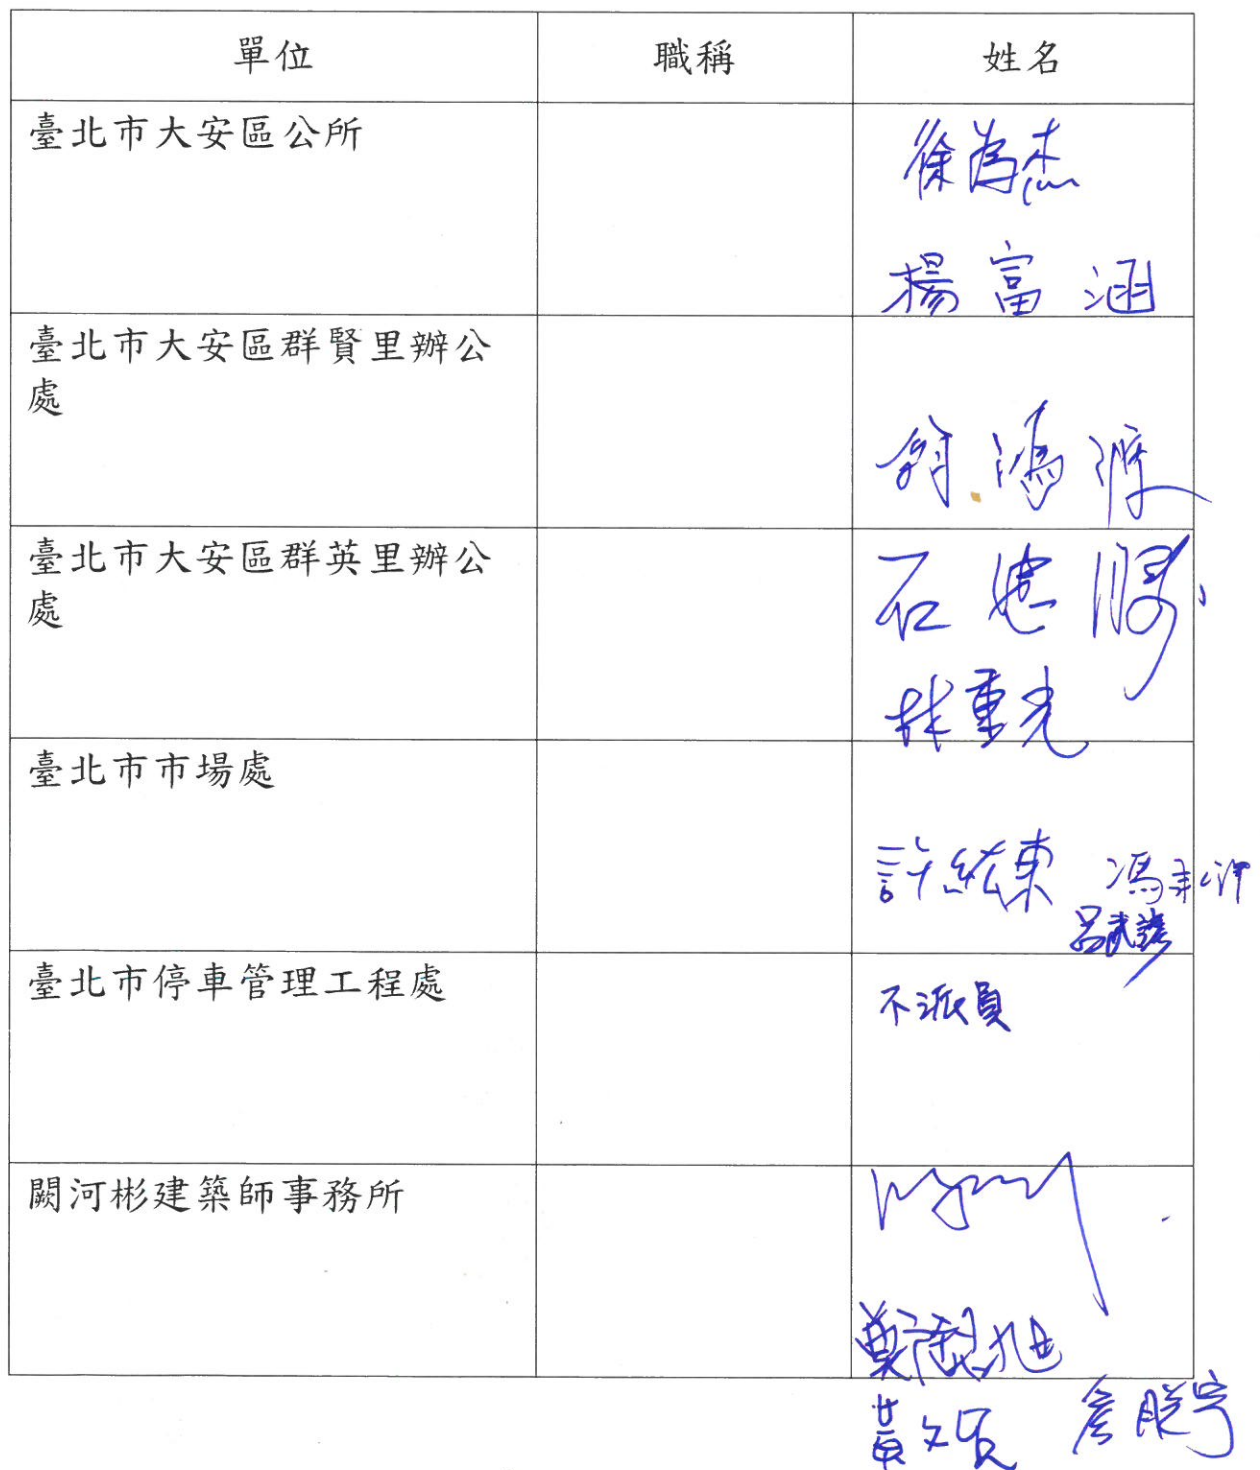 單位 職稱 姓名
臺北市大安區公所
徐為杰
楊富涵
臺北市大安區群賢里辦公
處
翁鴻源
臺北市大安區群英里辦公
處
石
林重光
臺北市市場處
許紘東 馮
呂武
臺北市停車管理工程處
不派員
闕河彬建築師事務所
鄭
黃文 詹